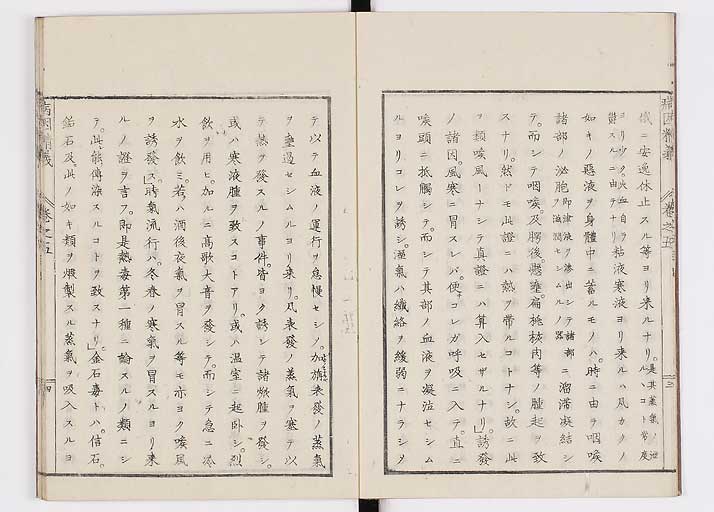 儀ニ安逸休止スル等ヨリ来ルナリ。是其蒸氣ノ泄ルヽコト常度
ヨリ少ク。血自ラ粘液寒液ヨリ来ルハ凡カクノ
如キノ惡液ヲ身體中ニ蓄ルモノハ。時ニ由テ咽喉
諸部ノ泌胞即津液ヲ滲出シテ諸部ヲ滋潤セシムルノ器ニ溜滞凝結シ
テ。而シテ咽喉。及腭後。懸壅。扁桃核肉等ノ腫起ヲ致
スナリ。然ドモ此證ニハ熱ヲ帶ルコトナシ。故ニ此
ヲ類喉風ーナシテ真證ニハ算入セザルナリ」誘發
ノ諸因。風寒ニ冒スレバ。便コレガ呼吸ニ入テ。直ニ
喉頭ニ抵觸シテ。而シテ其部ノ血液ヲ凝泣セシム
ルヨリコレヲ誘シ。溼氣ハ纖絡ヲ緩弱ニナラシメ
テ以テ血液ノ運行ヲ怠慢セシメ。加旃表發ノ蒸氣
ヲ壅遏セシムルヨリ来リ。凡表發ノ蒸氣ヲ塞テ以
テ熱ヲ發スルノ事件。皆ヨク誘シテ諸腫ヲ發シ。
或ハ寒液腫ヲ致スコトアリ。或ハ温室ニ起卧シ。烈
飲ヲ用ヒ。加ルニ高歌大音ヲ發シテ。而シテ急ニ冷
水ヲ飲ミ。若ハ酒後夜氣ヲ冒スル等モ亦ヨク喉風
ヲ誘發ス。時氣流行ハ。冬春ノ寒氣ヲ冒スルヨリ来
ルノ證ヲ言フ。即是熱毒第一種ニ論スルノ類ニシ
テ。此能傳染スルコトヲ致スナリ」金石毒トハ。信石。
鉛石及。此ノ如キ類ヲ煆製スル蒸氣ヲ吸入スルヨ
病因精義
卷之五
四